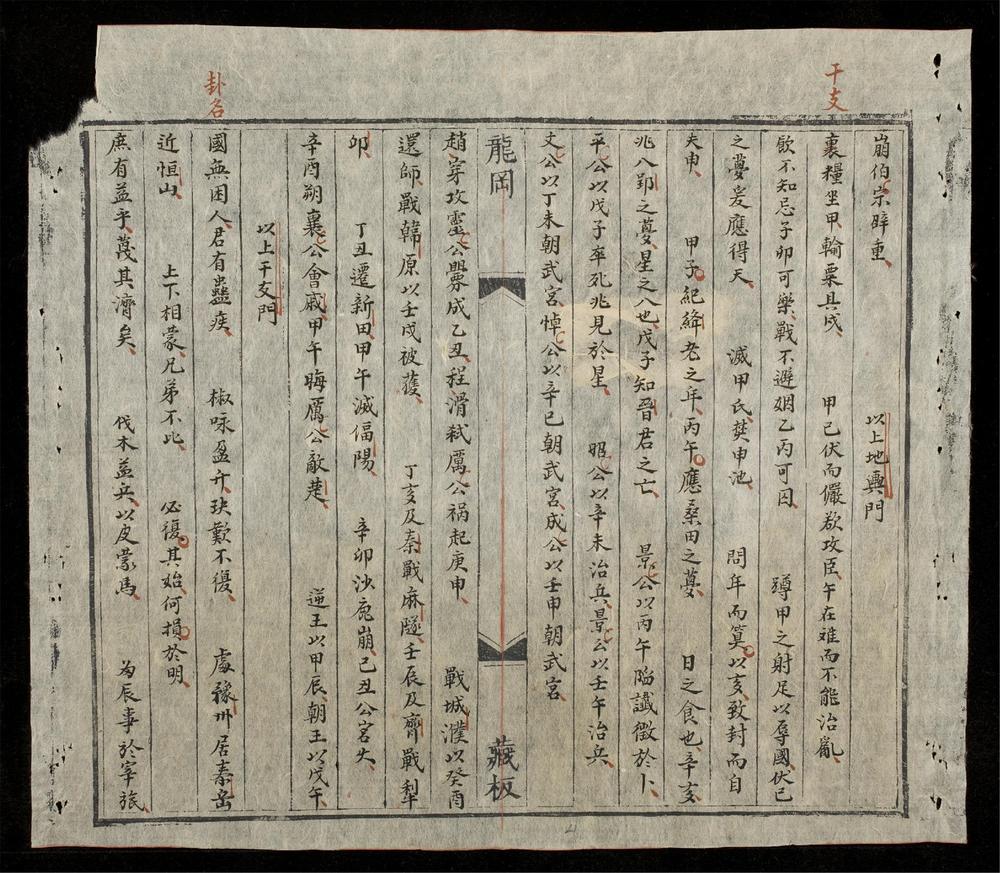 干支
崩伯宗辟重 以上地輿門
裹糧坐甲輸粟具成 甲已伏而儼欲攻臣午在雖而不能治亂
飲不知忌子卯可樂戰不避姻乙丙可囚 蹲甲之射足以辱國伏己
之夢爰應得天 滅甲氏焚申池 問年而算以亥致封而自
失申 甲子紀絳老之年丙午應桑田之夢 日之食也辛亥
兆入郢之夢星之入也戊子知晉君之亡 景公以丙午陷讖徵於卜
平公以戊子卒死兆見於星 昭公以辛未治兵景公以壬午治兵
文公以丁未朝武宮悼公以辛巳朝武宮成公以壬申朝武宮
龍岡 藏板
趙穿攻靈公釁成乙丑程滑弒厲公禍起庚申 戰城濮以癸酉
還師戰韓原以壬戌被獲 丁亥及秦戰麻隧壬辰及齊戰犁
卯 丁丑遷新田甲午滅偪陽 辛卯沙鹿崩己丑公宮火
辛酉朔襄公會戚甲午晦厲公敵楚 逆王以甲辰朝王以戊午
以上干支門
卦名
國無困人君有蠱疾 椒咏盈升玦歎不復 處豫州居泰岳
近恒山 上下相蒙兄弟不比 必復其始何損於明
庶有益乎蔑其濟矣 伐木益兵以皮蒙馬 為辰事於宰旅